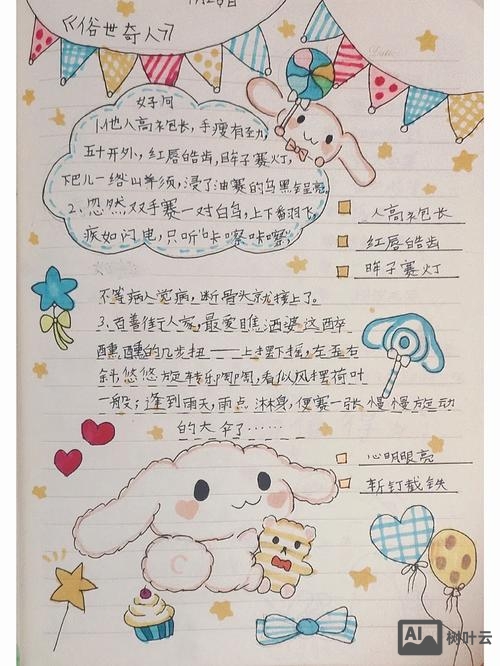 1月28日
《俗世奇人》
好子词
1.他人高袍长，手瘦有劲，
五十开外，红唇皓齿，眸子赛灯，
下巴儿一绺山羊须，浸了油赛的乌黑锃亮。
2.忽然双手赛一对白鸟，上下翻飞，
疾如闪电，只听"咔嚓咔嚓"，
人高袍长
红唇皓齿
眸子赛灯
不等病人觉病，断骨头就接上了。
3.百善街人家，最爱瞧酒婆这醉
醺醺的几步扭——上摆下摇，左歪右
斜，悠悠旋转乐陶陶，看似风摆荷叶
一般；逢到雨天，雨点淋身，便赛一张慢慢旋动
的大伞了……
心明眼亮
斩钉截铁
AI 树叶云